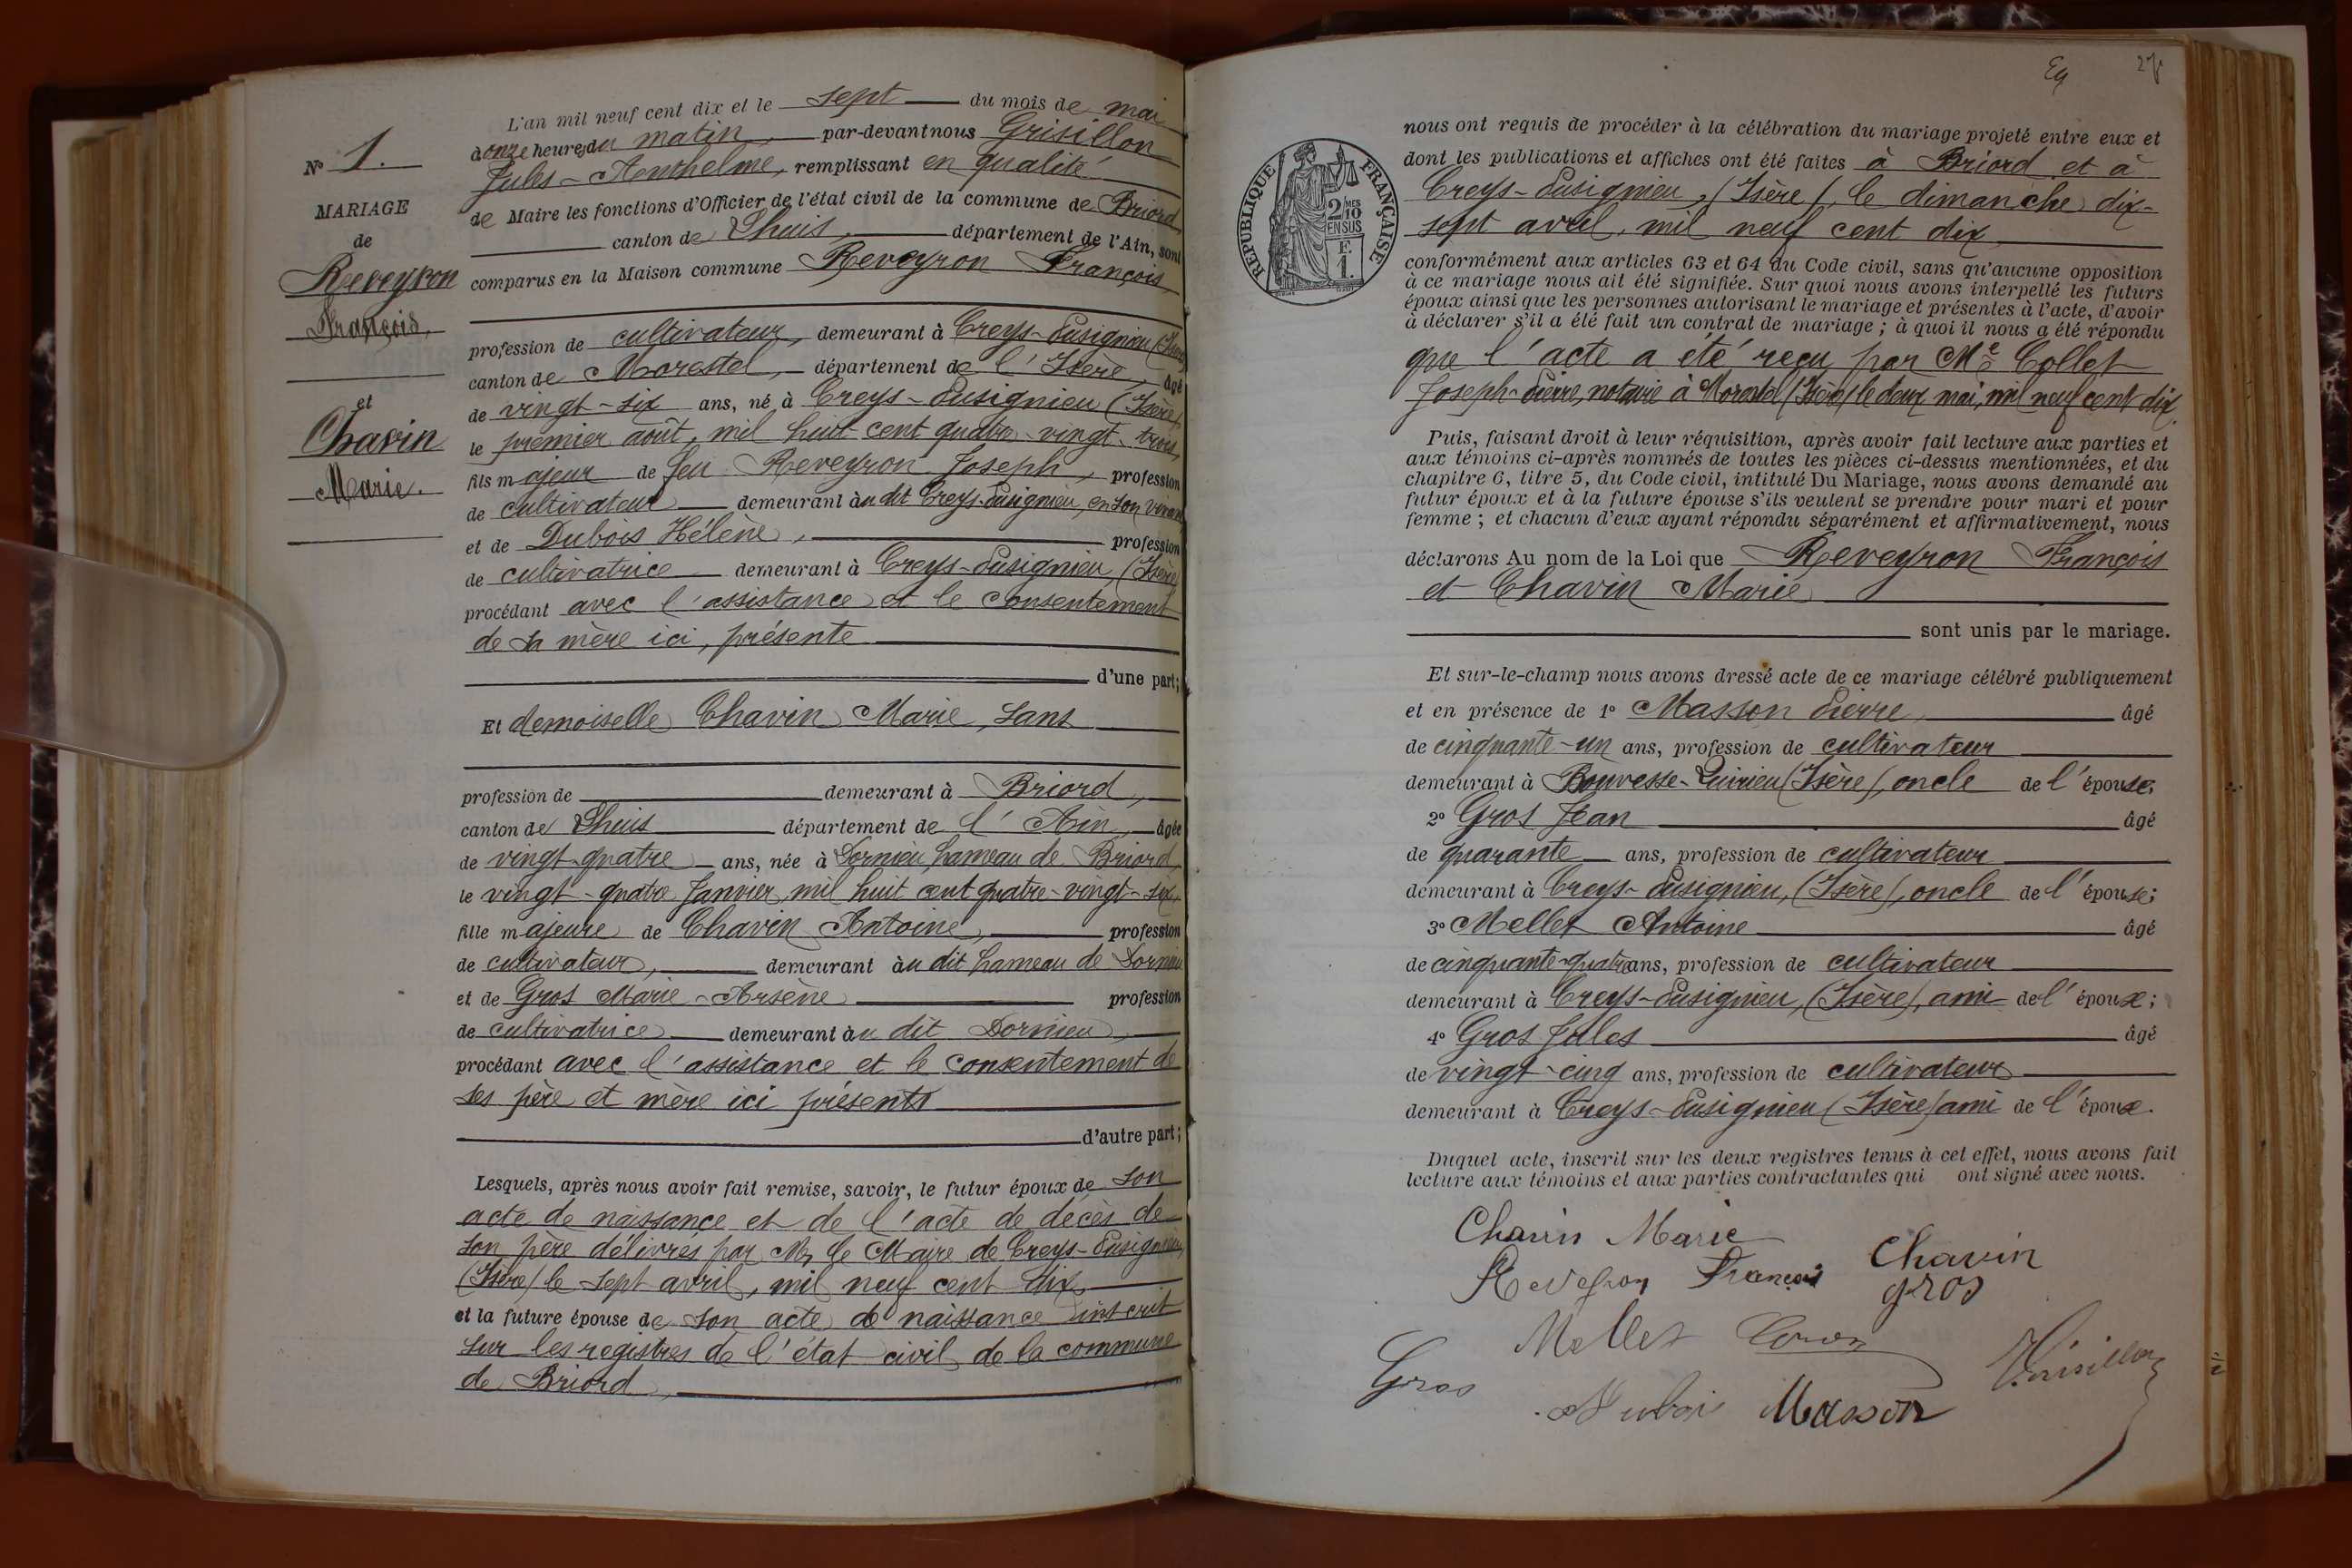 N° 1.
MARIAGE
de
Reveyron
François,
et
Chavin
Marie.
L'an mil neuf cent dix et le sept du mois de mai
à onze heures du matin, par-devant nous Grisillon
Jules-Anthelme, remplissant en qualité
de Maire les fonctions d'Officier de l'état civil de la commune de Briord,
canton de Lhuis, département de l'Ain, sont
comparus en la Maison commune Reveyron François
profession de cultivateur, demeurant à Creys-Pusignieu (Isère)
canton de Morestel, département de l'Isère, âgé
de vingt-six ans, né à Creys-Pusignieu (Isère)
le premier août, mil huit cent quatre-vingt-trois,
fils majeur de feu Reveyron Joseph, profession
de cultivateur demeurant au dit Creys-Pusignieu, en son vivant
et de Dubois Hélène, profession
de cultivatrice demeurant à Creys-Pusignieu, (Isère)
procédant avec l'assistance et le consentement
de sa mère ici, présente
d'une part;
Et demoiselle Chavin Marie, sans
profession de demeurant à Briord,
canton de Lhuis département de l'Ain, âgée
de vingt-quatre ans, née à Dornieu, hameau de Briord,
le vingt-quatre Janvier, mil huit cent quatre-vingt-six,
fille majeure de Chavin Antoine, profession
de cultivateur, demeurant au dit hameau de Dornieu
et de Gros Marie-Arsène profession
de cultivatrice demeurant au dit Dornieu,
procédant avec l'assistance et le consentement de
ses père et mère ici présents
d'autre part;
Lesquels, après nous avoir fait remise, savoir, le futur époux de son
acte de naissance et de l'acte de décès de
son père délivrés par Mr le Maire de Creys-Pusignieu,
(Isère) le sept avril, mil neuf cent dix,
et la future épouse de son acte de naissance inscrit
sur les registres de l'état civil de la commune
de Briord,
27
RÉPUBLIQUE FRANÇAISE
2/10 MES
EN SUS
F.
1.
nous ont requis de procéder à la célébration du mariage projeté entre eux et
dont les publications et affiches ont été faites à Briord et à
Creys-Pusignieu, (Isère), le dimanche dix-
sept avril, mil neuf cent dix
conformément aux articles 63 et 64 du Code civil, sans qu'aucune opposition
à ce mariage nous ait été signifiée. Sur quoi nous avons interpellé les futurs
époux ainsi que les personnes autorisant le mariage et présentes à l'acte, d'avoir
à déclarer s'il a été fait un contrat de mariage ; à quoi il nous a été répondu
que l'acte a été reçu par Me Collet
Joseph-Pierre, notaire à Morestel (Isère) le deux mai, mil neuf cent dix.
Puis, faisant droit à leur réquisition, après avoir fait lecture aux parties et
aux témoins ci-après nommés de toutes les pièces ci-dessus mentionnées, et du
chapitre 6, titre 5, du Code civil, intitulé Du Mariage, nous avons demandé au
futur époux et à la future épouse s'ils veulent se prendre pour mari et pour
femme ; et chacun d'eux ayant répondu séparément et affirmativement, nous
déclarons Au nom de la Loi que Reveyron François
et Chavin Marie
sont unis par le mariage.
Et sur-le-champ nous avons dressé acte de ce mariage célébré publiquement
et en présence de 1° Masson Pierre, âgé
de cinquante-un ans, profession de cultivateur
demeurant à Bouvesse-Quirieu (Isère), oncle de l'épouse;
2° Gros Jean âgé
de quarante ans, profession de cultivateur
demeurant à Creys-Pusignieu, (Isère), oncle de l'épouse;
3° Mellet Antoine âgé
de cinquante-quatre ans, profession de cultivateur
demeurant à Creys-Pusignieu, (Isère), ami de l'époux;
4° Gros Jules âgé
de vingt-cinq ans, profession de cultivateur
demeurant à Creys-Pusignieu (Isère) ami de l'époux.
Duquel acte, inscrit sur les deux registres tenus à cet effet, nous avons fait
lecture aux témoins et aux parties contractantes qui ont signé avec nous.
Chavin Marie
Chavin
Reveyron François
gros
Mellet Gros
Gros
Dubois Masson
Grisillon